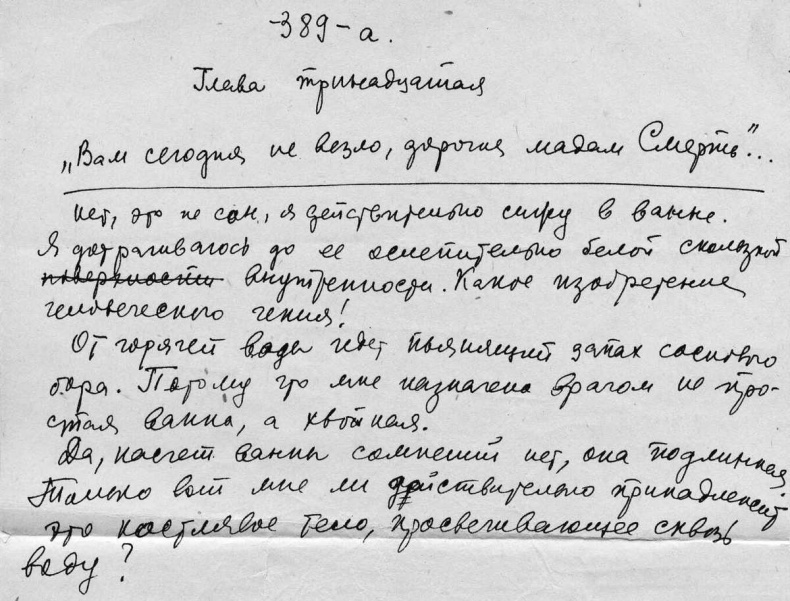 -389-а.
Глава тринадцатая
„Вам сегодня не везло, дорогая мадам Смерть"...
Нет, это не сон, я действительно сижу в ванне.
Я дотрагиваюсь до ее ослепительно белой скользкой
поверхности внутренности. Какое изобретение
человеческого гения!
От горячей воды идет пьянящий запах соснового
бора. Потому что мне назначена врачом не про-
стая ванна, а хвойная.
Да, насчет ванны сомнений нет, она подлинная.
Только вот мне ли действительно принадлежит
это костлявое тело, просвечивающее сквозь
воду?